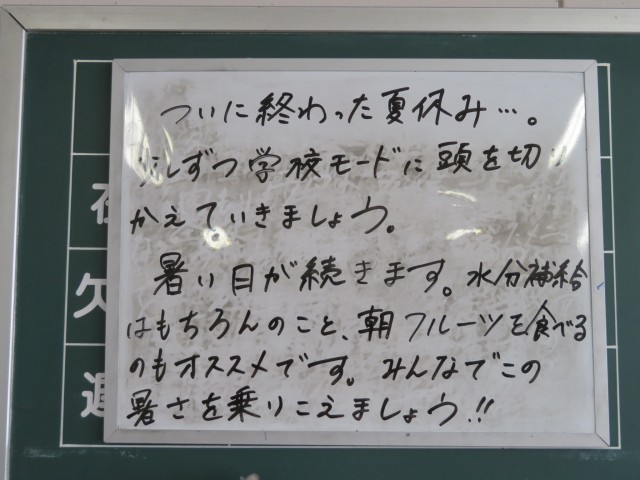 ついに終わった夏休み…。
少しずつ学校モードに頭を切り
かえていきましょう。
暑い日が続きます。水分補給
はもちろんのこと、朝フルーツを食べる
のもオススメです。みんなでこの
暑さを乗りこえましょう!!
欠